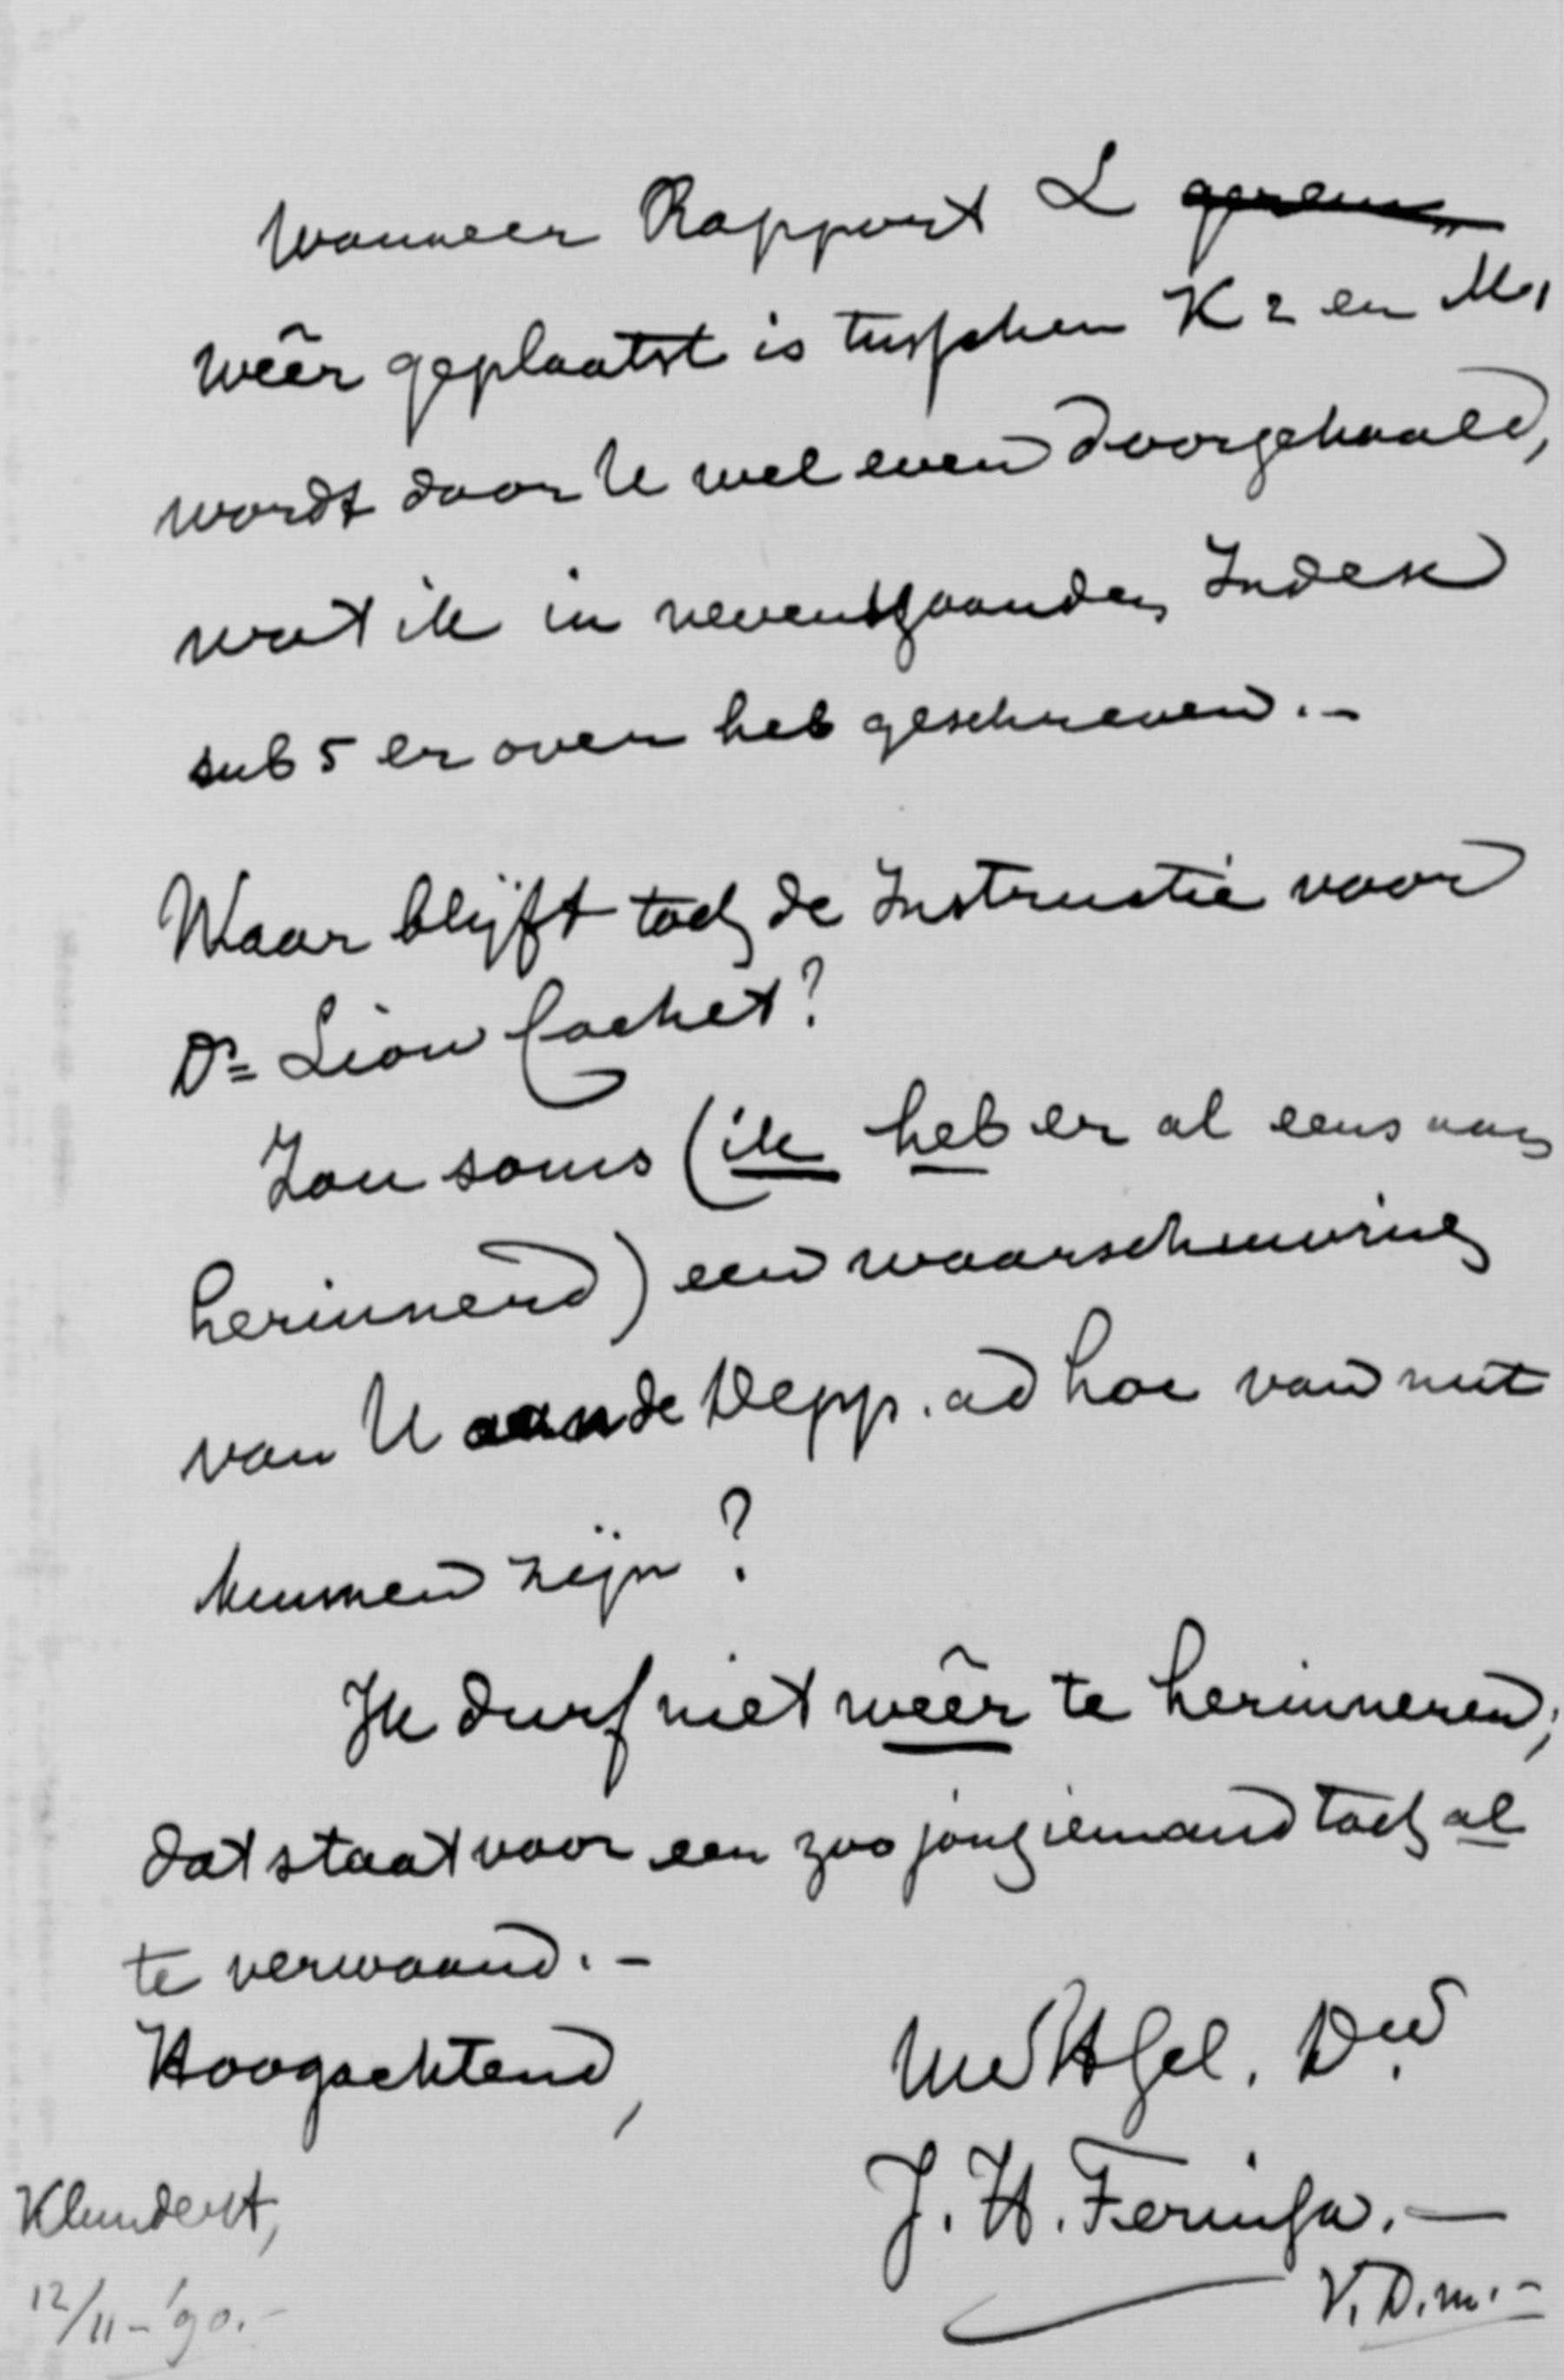 Wanneer Rapport L
wêêr geplaatst is tusschen K 2 en M,
wordt door U wel even doorgehaald,
wat ik in nevensgaanden Index
sub 5 er over heb geschreven.-
Waar blijft toch de Instructie voor
Ds= Lion Cachet?
Zou soms (ik heb er al eens aan
herinnerd) een waarschuwing
van U aan de Depp. ad hoc van nut
kunnen zijn?
Ik durf niet wêêr te herinneren;
dat staat voor een zoo jong iemand toch al
te verwaand.-
Hoogachtend,
UwEHGel. Dwd.
J. H. Feringa.—
V.D.m.-
Klundert,
12/11-'90.-